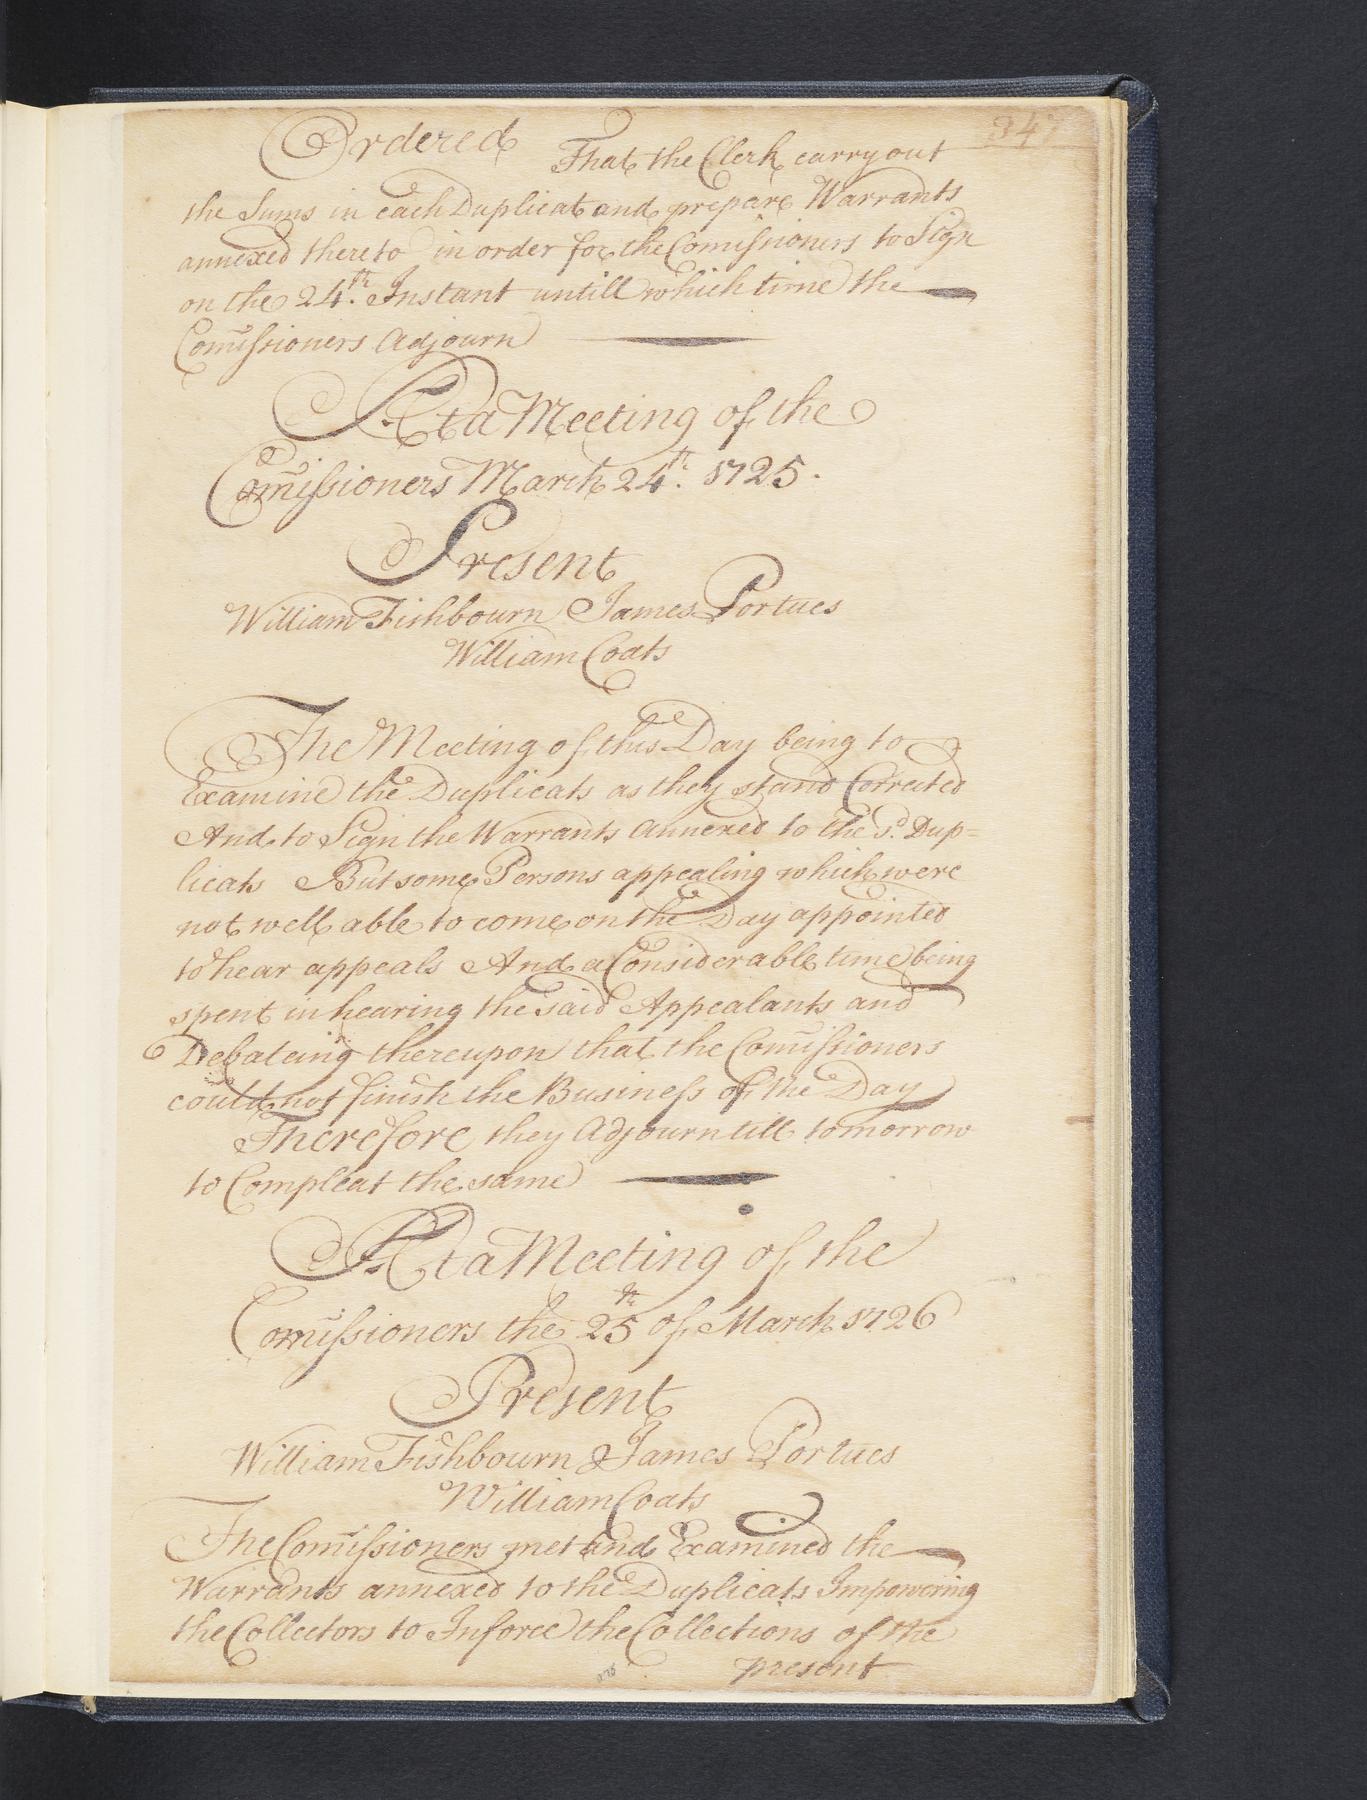 347
Ordered That the Clerk carry out
the Sums in each Duplicat and prepare Warrants
annexed thereto in order for the Comissioners to Sign
on the 24th. Instant untill which time the
Comissioners Adjourn
At a Meeting of the
Comissioners March 24th. 1725.
Present
William Fishbourn James Portues
William Coats
The Meeting of this Day being to
Examine the Duplicats as they stand Corrected
And to Sign the Warrants annexed to the sd. Dup=
licats But some Persons appealing which were
not well able to come on the Day appointed
to hear appeals And a Considerable time being
spent in hearing the said Appealants and
Debateing thereupon that the Comissioners
could not finish the Business of the Day
Therefore they Adjourn till tomorrow
to Compleat the same
At a Meeting of the
Comissioners the 25th of March 1726
Present
William Fishbourn & James Portues
William Coats
The Comissioners met and Examined the
Warrants annexed to the Duplicats Impowering
the Collectors to Inforce the Collections of the
present